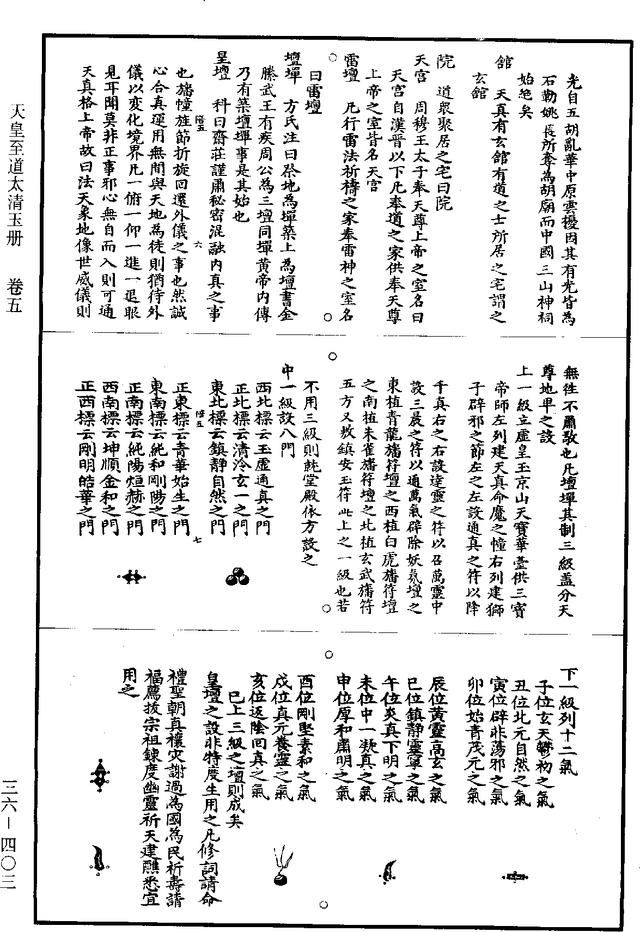 天皇至道太清玉册 卷五
三六—四〇三
光自五胡亂華中原雲擾因其有光皆為
石勒姚長所奪為胡廟而中國三山神祠
始絶矣
館 天真有玄館有道之士所居之宅謂之
玄館
院 道眾聚居之宅曰院
天宫 周穆王太子奉天尊上帝之室名曰
天宫自漢晉以下凡奉道之家供奉天尊
上帝之室皆名天宫
雷壇 凡行雷法祈禱之家奉雷神之室名
曰雷壇
壇墠 方氏注曰祭地為墠築土為壇書金
縢武王有疾周公為三壇同墠黄帝内傳
乃有築壇墠事是其始也
皇壇 科曰齋莊謹肅秘密混融内真之事
也旛幢旌節折旋回還外儀之事也然誠
陸五
六
心合真運用無間與天地為徒則猶待外
儀以變化境界凡一俯一仰一進一退眼
見耳聞莫非正事邪心無自而入則可通
天真格上帝故曰法天象地像世威儀則
無徃不肅敬也凡壇墠其制三級盖分天
尊地卑之設
上一級立虚皇玉京山天寶華臺供三寶
帝師左列建天真命魔之幢右列建獅
子辟邪之節左之左設通真之符以降
千真右之右設達靈之符以召萬靈中
設三晨之符以通萬氣辟除妖氛壇之
東植青龍旛符壇之西植白虎旛符壇
之南植朱雀旛符壇之北植玄武旛符
五方又敕鎮安玉符此上之一級也若
不用三級則就堂殿依方設之
中一級設八門
西北標云玉虚通真之門
正北標云清泠玄一之門
東北標云鎮靜自然之門
陸五
七
正東標云青華始生之門
東南標云純和剛陽之門
正南標云純陽烜赫之門
西南標云坤順金和之門
正西標云剛明皓華之門
下一級列十二氣
子位玄天鬱初之氣
丑位北元自然之氣
寅位辟非蕩邪之氣
卯位始青茂元之氣
辰位黄靈高玄之氣
巳位鎮靜靈寧之氣
午位炎真下明之氣
未位中一凝真之氣
申位厚和肅明之氣
酉位剛堅素和之氣
戌位真元養靈之氣
亥位返陰回真之氣
已上三級之壇則成矣
皇壇之設非特度生用之凡修詞請命
禮聖朝真禳灾謝過為國為民祈壽請
福薦拔宗祖鍊度幽靈祈天建醮悉宜
用之